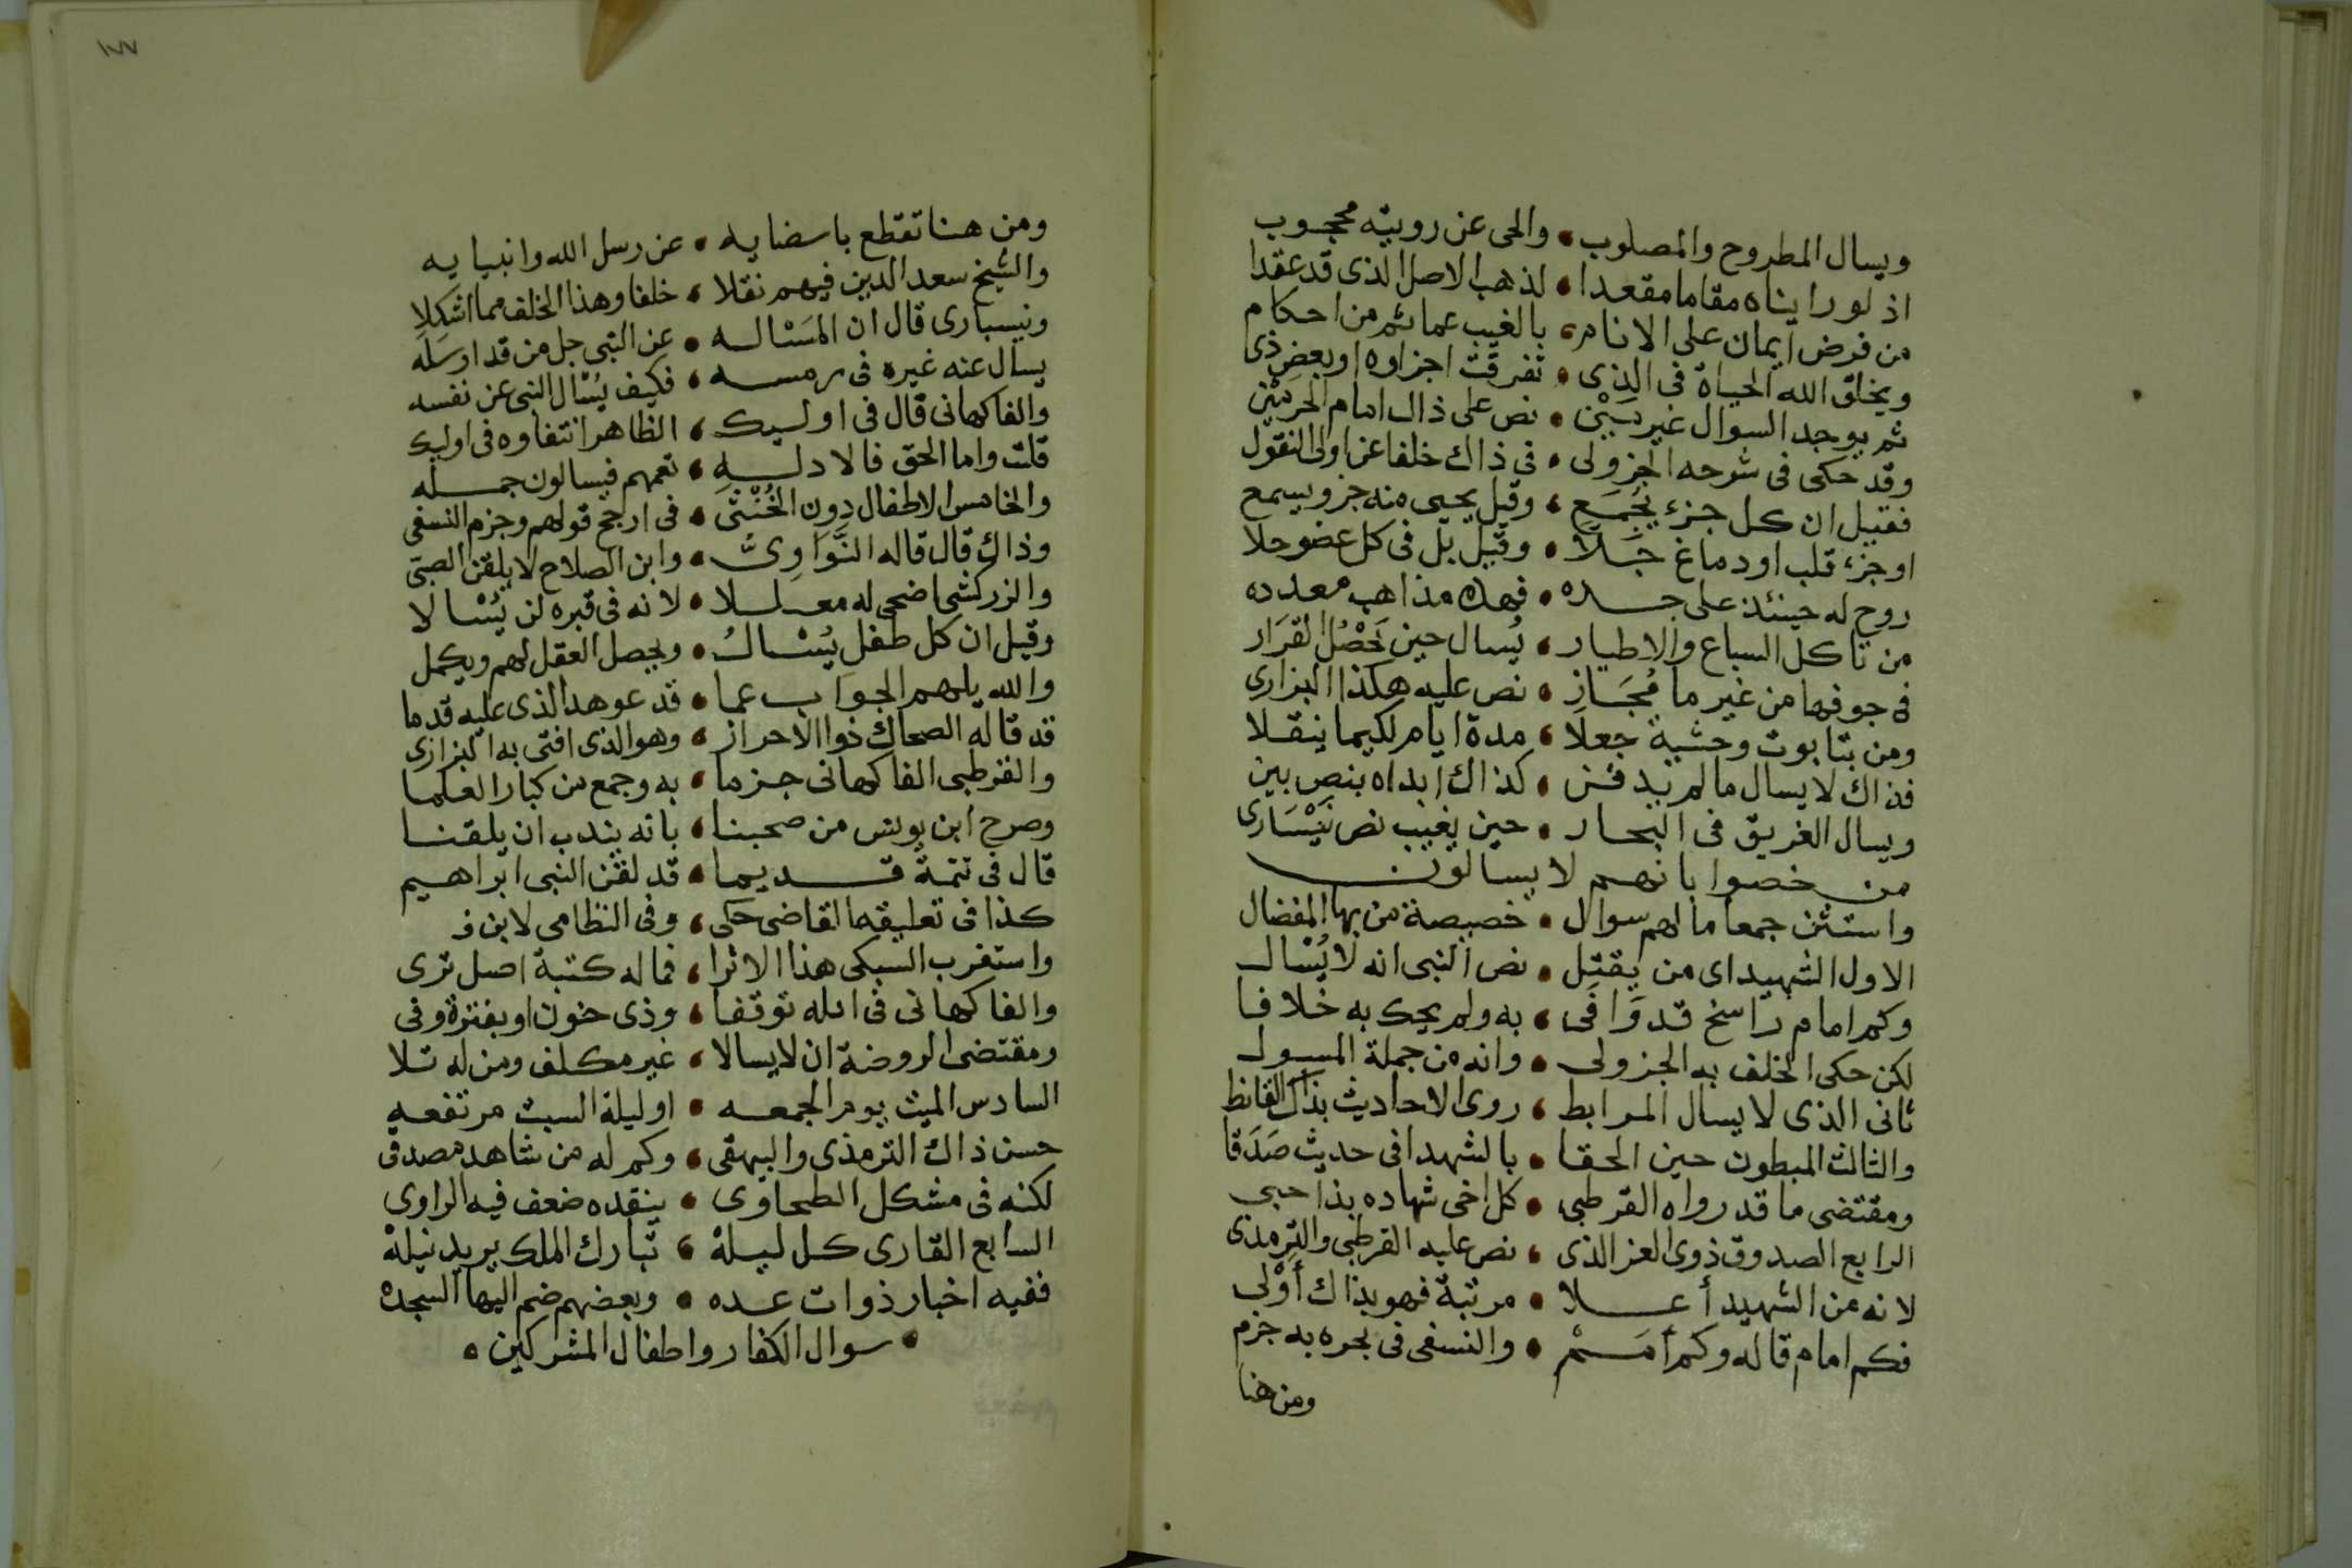 ويسال المطروح والمصلوب • والحى عن رويته محجوب
اذ لو رايناه مقاما مقعدا • لذهب الاصل الذى قد عقدا
من فرض ايمان على الانام ، بالغيب عما ثم من احكام
ويخلق الله الحياة فى الذى • تفرقت اجزاوه او بعض ذى
ثم يوجد السوال غير بين • نص على ذاك امام الحرمين
وقد حكى فى شرحه الجزولى • فى ذاك خلفا عن اولى النقول
فقيل ان كل جزء يجمع ، وقيل يحيى منه جزو يسمع
او جزء قلب او دماغ جلا • وقيل بل فى كل عضو حلا
روح له حينئذ على جسده • فهذه مذاهب معدده
من تاكل السباع والاطيار ، يُسال حين تحصُل القرَار
فى جوفها من غير ما مُجَازِ • نص عليه هكذا البزازى
ومن بتابوت وحشية جعلا ، مدة ايام لكيما ينقلا
فذاك لا يسال ما لم يدفن • كذاك ابداه بنص بين
ويسال الغريق فى البحار • حين يغيب نص نَيْسَارى
من خصوا بانهم لا يسالون
واستثن جمعا ما لهم سوال • خصيصة من بها المفضال
الاول الشهيد اى من يقتل • نص النبى انه لا يُسْال
وكم امام راسخ قد وَافَى ، به ولم يحك به خلافا
لكن حكى الخلف به الجزولى • وانه من جملة المسول
ثانى الذى لا يسال المرابط ، روى الاحاديث بذاك القانط
والثالث المبطون حين الحقا • بالشهدا فى حديث صَدَقا
ومقتضى ما قد رواه القرطبى • كل اخى شهاده بذا حبى
الرابع الصدوق ذوى العز الذى ، نص عليه القرطبى والترمذى
لانه من الشهيد أعلا • مرتبة فهو بذاك أوْلى
فكم امام قاله وكم أمَمْ • والنسفى فى بحره به جزم
ومن هنا
١٧٧
ومن هنا تقطع باسضايه • عن رسل الله وانبيايه
والشيخ سعد الدين فيهم نقلا ، خلفا وهذا الخلف مما اشكلا
ونيسبارى قال ان المَسْاله • عن النبى جل من قد ارسَله
يسال عنه غيره فى رمسه ، فكيف يُسْال النبى عن نفسه
والفاكهانى قال فى اوليك ، الظاهر انتفاوه فى اوليك
قلت واما الحق فالادلهِ ، تعمهم فيسالون جمله
والخامس الاطفال دون الخُنْثَى • فى ارجح قولهم وجزم النسفى
وذاك قال قاله النَّوَاوِىُّ • وابن الصلاح لا يلقن الصبى
والزركشى اضحى له معللا • لانه فى قبره لن يُسْالا
وقيل ان كل طفلِ يُسْالُ • ويحصل العقل لهم ويكمل
والله يلهم الجواب عما • قد عوهد الذى عليه قدما
قد قاله الضحاك ذوا الاحراز ، وهو الذى افتى به البزازى
والقرطبى الفاكهانى جزما • به وجمع من كبار العلما
وصرح ابن يونس من صحبنا ، بانه يندب ان يلقنا
قال فى تتمة قديما • قد لقن النبى ابراهيم
كذا فى تعليقه القاضى حكى ، وفى النظامى لابن ف
واستغرب السبكى هذا الاثرا ، فما له كتبة اصل ترى
والفاكهانى فى ابله توقفا ، وذى جنون او بفترة وفى
ومقتضى الروضة ان لا يسالا ، غير مكلف ومن له تلا
السادس الميت يوم الجمعه • او ليلة السبت مرتفعه
حسن ذاك الترمذى والبيهقى ، وكم له من شاهد مصدق
لكنه فى مشكل الطحاوى • ينقده ضعف فيه الراوى
السابع القارى كل ليلة ، تبارك الملك يريد نيلة
ففيه اخبار ذوات عده • وبعضهم ضم اليها السجده
• سوال الكفار واطفال المشركين •